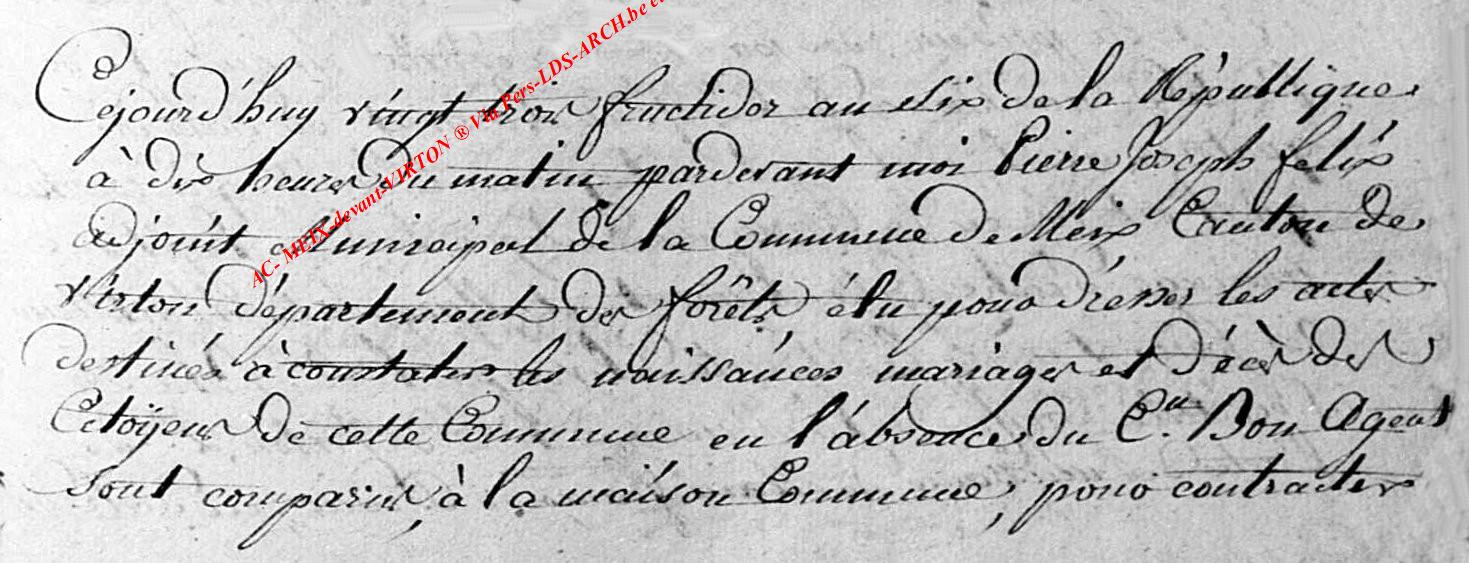 Cejourd'huy vingt trois fructidor an six de la République
à dix heures du matin pardevant moi Pierre Joseph felix
adjoint Municipal de la Commune de Meix Canton de
Virton département des forêts élu pour dresser les actes
destinés à constater les naissances mariages et décès des
Citoÿens de cette Commune en l'absence du C.en Bon Agent
sont comparus, à la maison Commune, pour contracter
AC- MEIX-devant-VIRTON ® Via Pers-LDS-ARCH.be